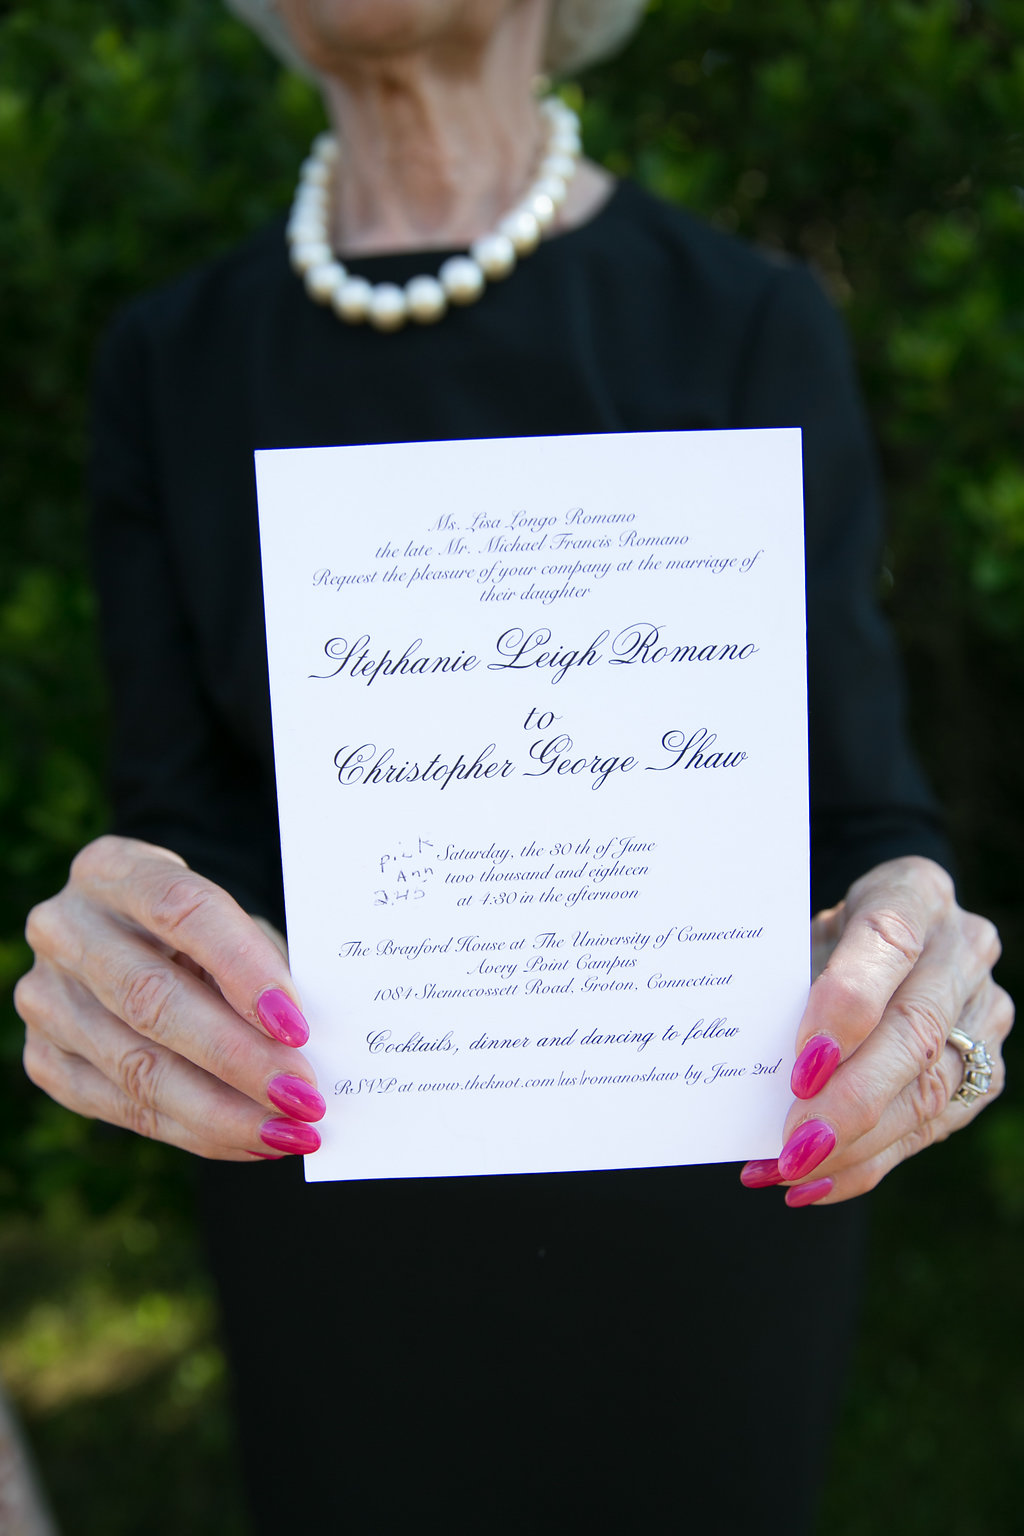 Ms. Lisa Longo Romano
the late Mr. Michael Francis Romano
Request the pleasure of your company at the marriage of
their daughter
Stephanie Leigh Romano
to
Christopher George Shaw
pick
Ann
2:45
Saturday, the 30th of June
two thousand and eighteen
at 4:30 in the afternoon
The Branford House at The University of Connecticut
Avery Point Campus
1084 Shennecossett Road, Groton, Connecticut
Cocktails, dinner and dancing to follow
RSVP at www.theknot.com/us/romanoshaw by June 2nd